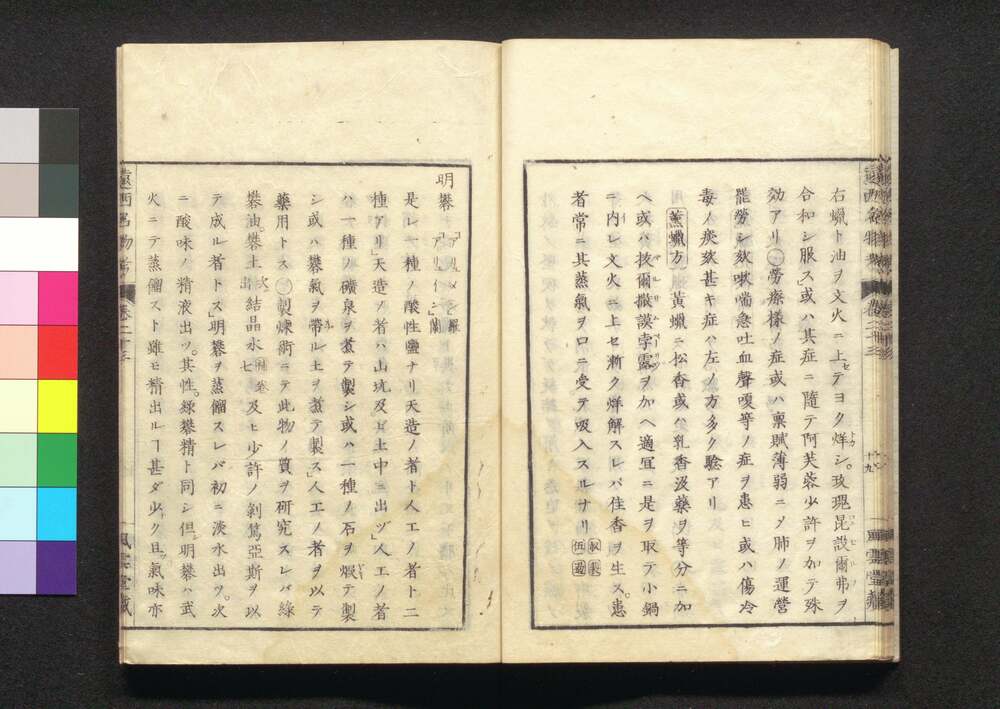 右蝋ト油ヲ文火ニ上セテヨク烊シ。玫瑰昆設爾弗ヲ
合和シ服ス」或ハ其症ニ隨テ阿芙蓉少許ヲ加テ殊
効アリ○勞瘵様ノ症或ハ禀賦薄弱ニメ肺ノ運營
罷勞シ欬嗽喘急吐血聲嗄等ノ症ヲ患ヒ或ハ傷冷
毒ノ痰欬甚キ症ハ左ノ方多ク驗アリ
薫蝋方 黄蝋ニ松香或ハ乳香没藥ヲ等分ニ加
ヘ或ハ抜爾撒謨孛露ヲ加ヘ適冝ニ是ヲ取テ小鍋
ニ内レ文火ニ上セ漸ク烊解スレバ佳香ヲ生ス。患
者常ニ其蒸氣ヲ口ニ受テ吸入スルナリ
遠西名物考 卷二十三 十九 風雲堂藏
明礬 「アリュメン」羅 「アリュイン」蘭
是レ一種ノ酸性鹽ナリ天造ノ者ト人工ノ者ト二
種アリ」天造ノ者ハ山坑及ビ土中ニ出ヅ」人工ノ者
ハ一種ノ礦泉ヲ煮テ製シ或ハ一種ノ石ヲ煆テ製
シ或ハ礬氣ヲ帶ル土ヲ煮テ製ス」人工ノ者ヲ以テ
藥用トス○製煉術ニテ此物ノ質ヲ研究スレバ綠
礬油。礬土 結晶水 及ヒ少許ノ剥篤亞斯ヲ以
テ成ル者トス」明礬ヲ蒸餾スレバ初ニ淡水出ツ。次
ニ酸味ノ精液出ツ。其性。綠礬精ト同シ但。明礬ハ武
火ニテ蒸餾スト雖モ精出ルヿ甚ダ少ク且。氣味亦
遠西名物考 卷二十三 風雲堂藏